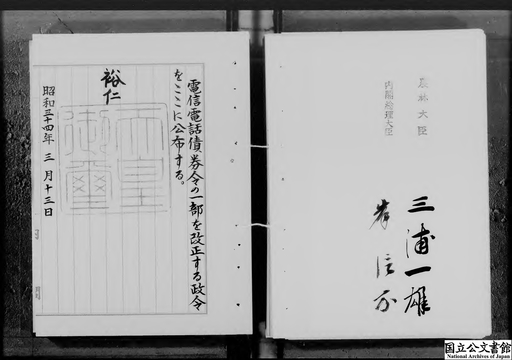 農林大臣
三浦一雄
内閣総理大臣
岸信介
電信電話債券令の一部を改正する政令
をここに公布する。
裕仁
天皇
御璽
昭和三十四年三月十三日
国立公文書館
National Archives of Japan